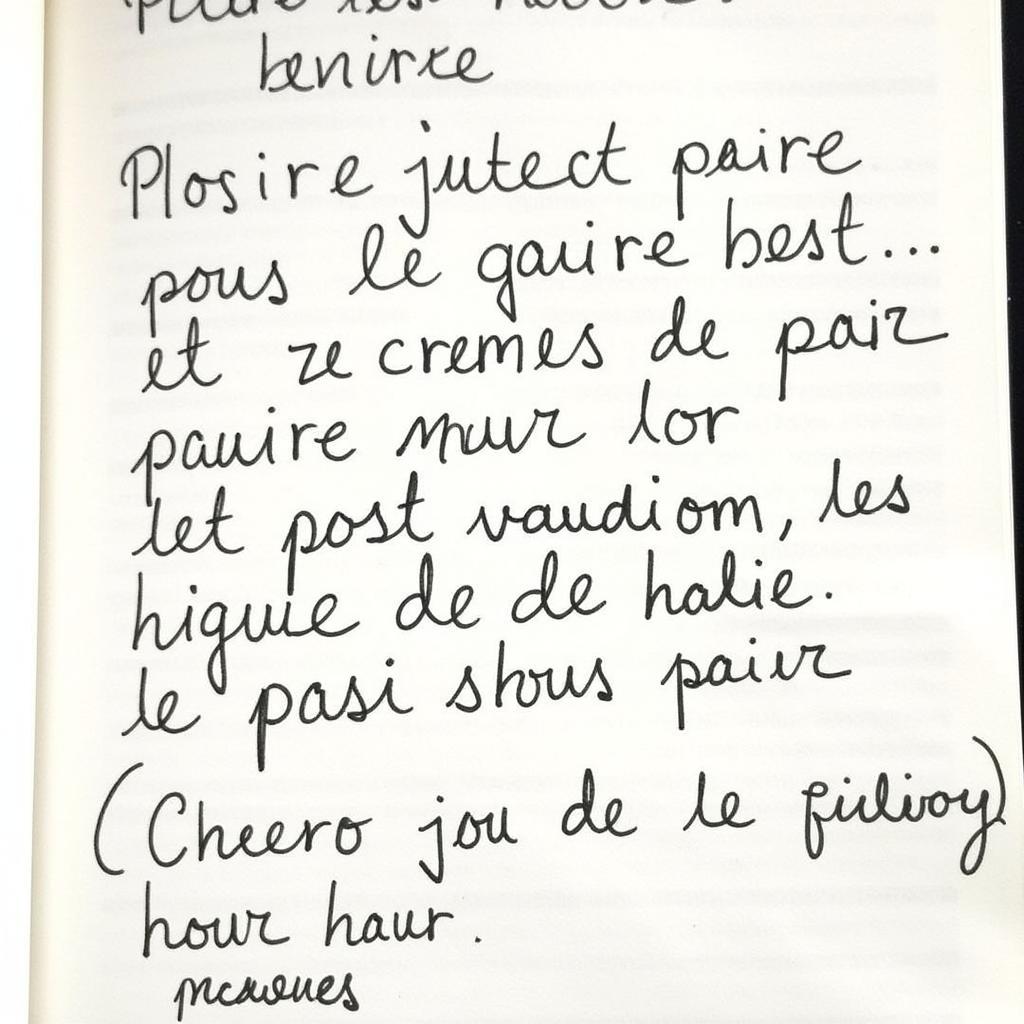 benirxe
Plosire jutect paire
pous le gauire best...
et ze cremes de paiz
pauire muur lor
let post vaudiom, les
higuie de de halie.
le pasi shous paier
(Cheero jou de le
hour haur.